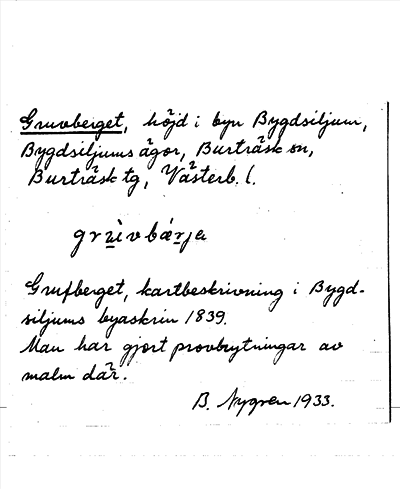 Gruvberget, höjd i byn Bygdsiljum,
Bygdsiljums ägor, Burträsk sn,
Burträsk tg, Västerb. l.
grùvbárja
Grufberget, kartbeskrivning i Bygd-
siljums byaskrin 1839.
Man har gjort provbrytningar av
malm där.
B. Nygren 1933.